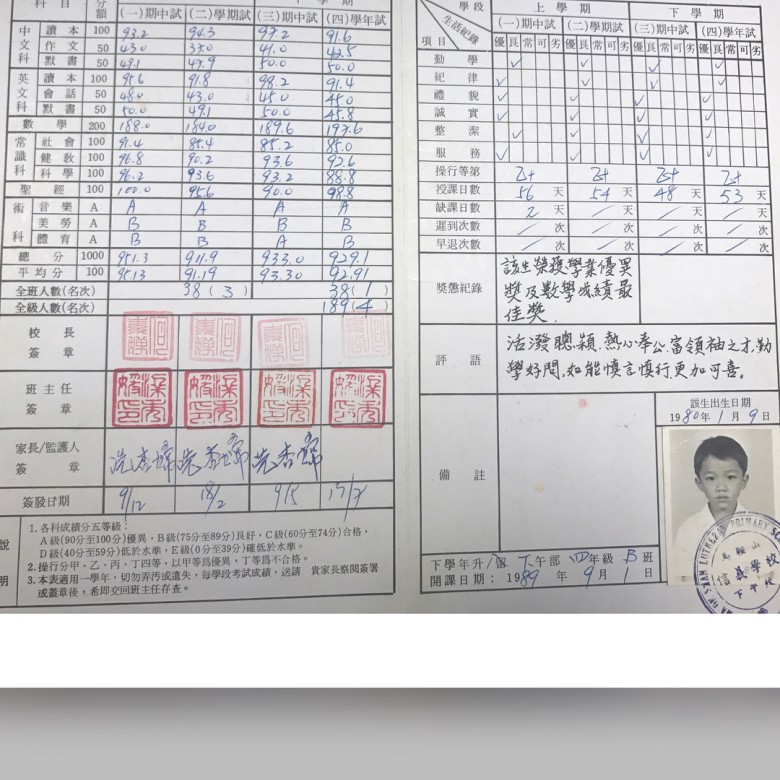 科 目 分額 (一)期中試 (二)學期試 (三)期中試 (四)學年試
中文科 讀本 100 93.2 94.3 97.2 91.6
作文 50 43.0 41.0 42.5
默書 50 49.1 47.9 50.0 50.0
英文科 讀本 100 95.6 91.8 98.2 91.4
會話 50 48.0 43.0 45.0 45.0
默書 50 50.0 49.1 50.0 45.8
數 學 200 188.0 184.0 189.6 197.6
常識科 社會 100 91.4 85.4 85.2 85.0
健教 100 96.8 90.2 93.6 92.6
科學 100 96.2 93.6 93.2 88.8
聖 經 100 100.0 95.6 90.0 98.8
術科 音樂 A A A A A
美勞 A B B B B
體育 A B B A B
總 分 1000 951.3 911.9 933.0 929.1
平均分 100 95.13 91.19 93.30 92.91
全班人數(名次) 38(3) 38(1)
全級人數(名次) 189(4)
校 長
簽 章
班主任
簽 章
家長/監護人
簽 章
簽發日期 9/12 18/2 9/5
說明
1.各科成績分五等級：
A級(90分至100分)優異，B級(75分至89分)良好，C級(60分至74分)合格，
D級(40分至59分)低於水準，E級(0分至39分)確低於水準。
2.操行分甲、乙、丙、丁四等，以甲等爲優異，丁等爲不合格。
3.本表適用一學年，切勿弄汚或遺失，每學段考試成績，送請 貴家長察閱簽署
或蓋章後，希即交回班主任存查。
學段 上 學 期 下 學 期
生活紀錄
項目 (一)期中試 (二)學期試 (三)期中試 (四)學年試
優 良 常 可 劣 優 良 常 可 劣 優 良 常 可 劣 優 良 常 可 劣
勤 學
紀 律
禮 貌
誠 實
整 潔
服 務
操行等第 乙+ 乙+ 乙+ 乙+
授課日數 56 天 54 天 48 天 53 天
缺課日數 2 天 / 天 / 天 / 天
遲到次數 / 次 / 次 / 次 / 次
早退次數 / 次 / 次 / 次 / 次
獎懲紀錄
該生榮獲學業優異
獎及數學成績最
佳獎.
評 語
活潑聰穎.熱心奉公.富領袖之才.勤
學好問,如能慎言慎行更加可喜。
備 註
該生出生日期
1980年1月9日
下學年升/留 下午部 四年級 B班
開課日期：1989年9月1日
LUTHERAN PRIMARY
馬鞍山
信義學校
下午校